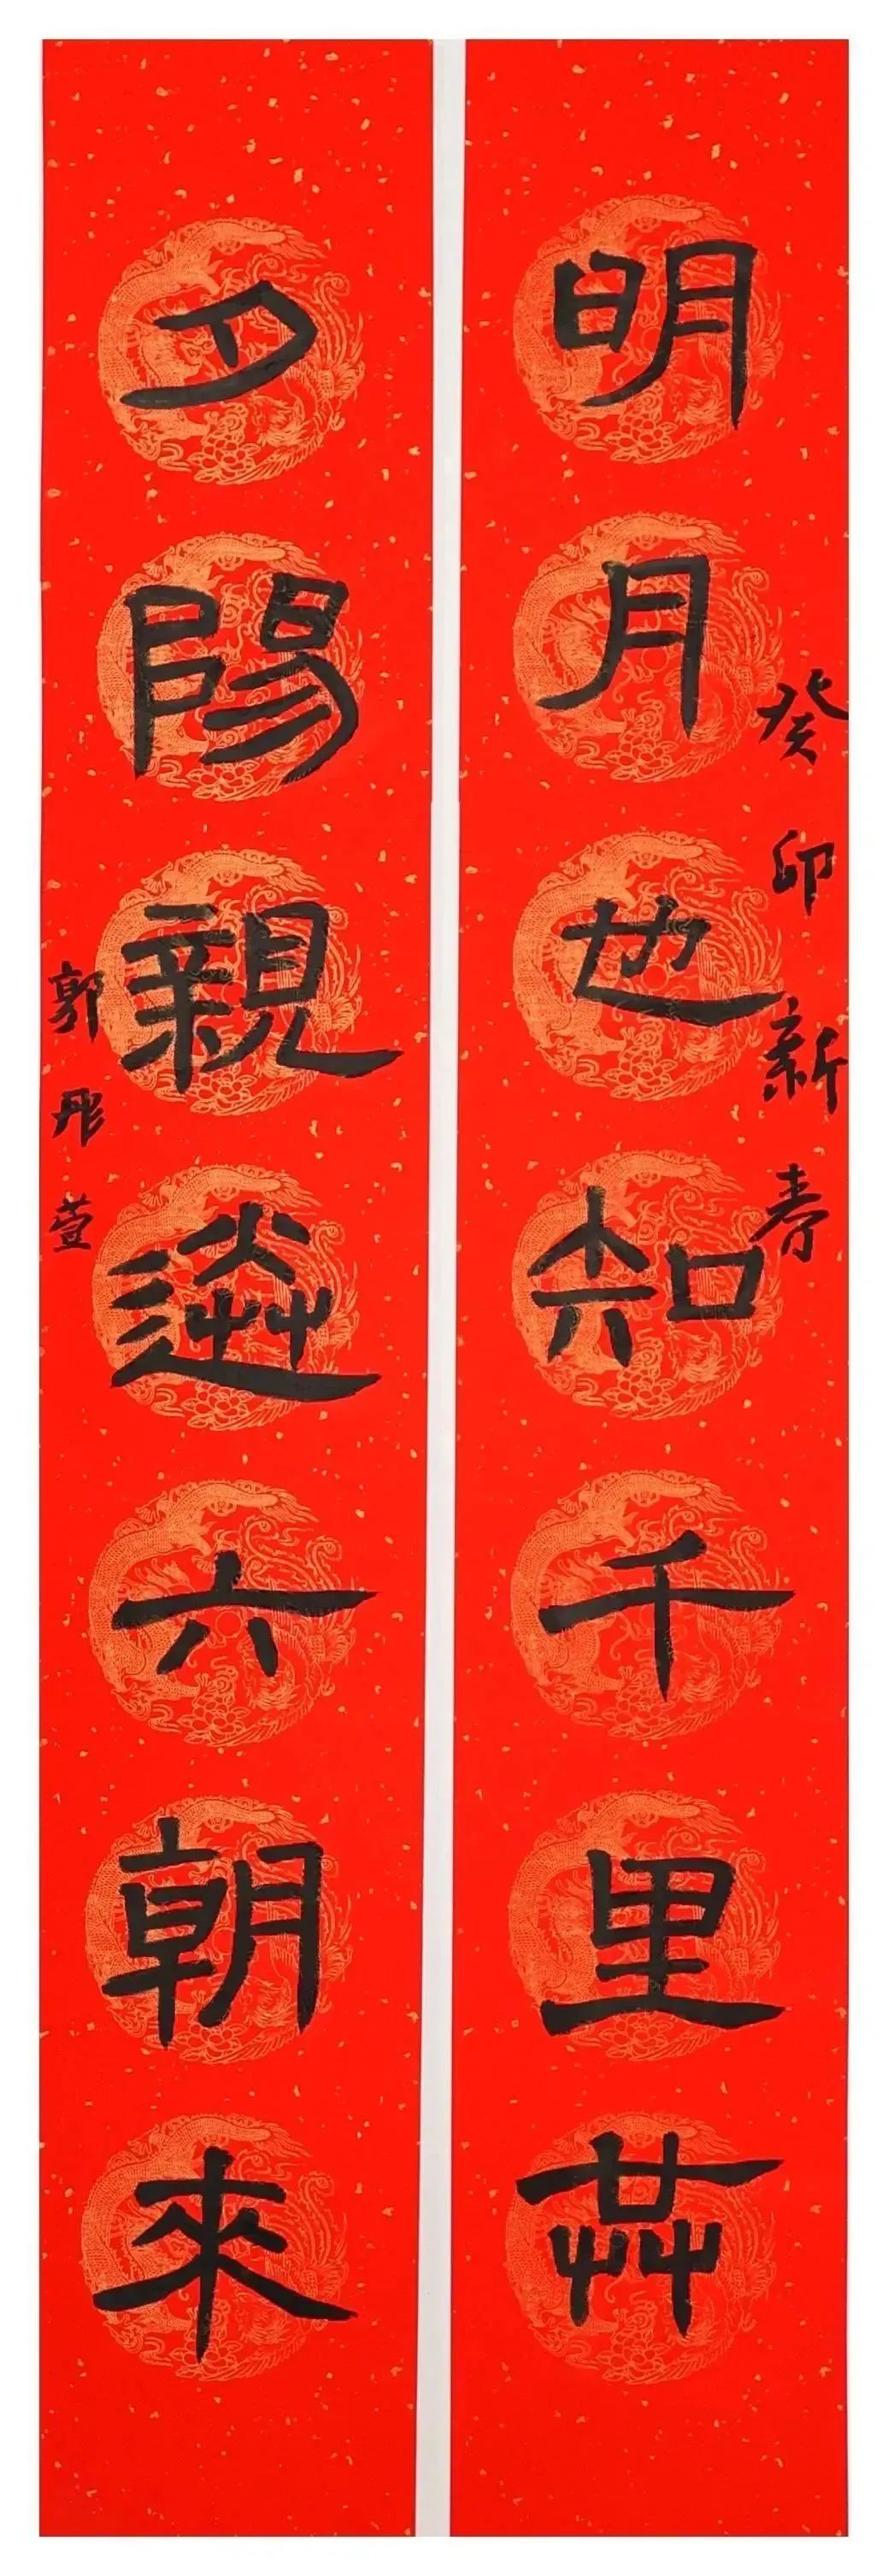 明月也知千里共
癸卯新春
夕陽親送六朝來
郭彤萱